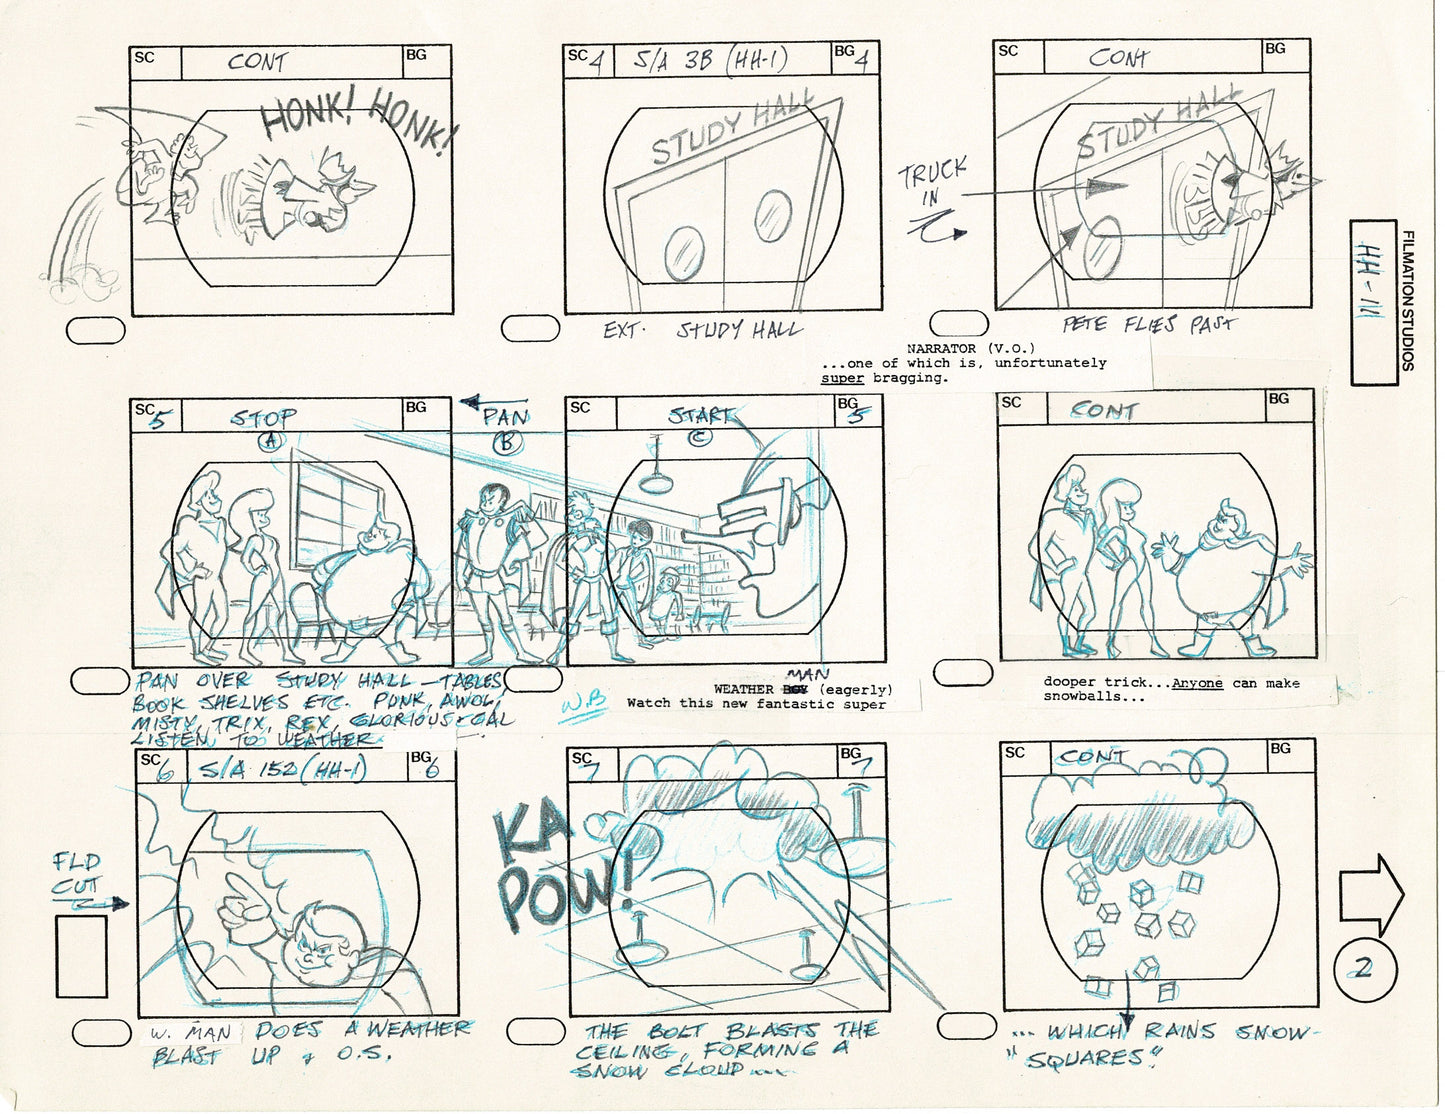 SC CONT BG
HONK! HONK!
SC 4 S/A 3B (HH-1) BG 4
STUDY HALL
EXT. STUDY HALL
SC CONT BG
STUDY HALL
TRUCK
IN
PETE FLIES PAST
NARRATOR (V.O.)
...one of which is, unfortunately
super bragging.
FILMATION STUDIOS
HH-111
SC 5 STOP BG
A
PAN
B
SC START BG 5
C
PAN OVER STUDY HALL — TABLES,
BOOK SHELVES ETC. PUNK, AWOL,
MISTY, TRIX, REX, GLORIOUS & GAL
LISTEN TO WEATHER
W.B
MAN
WEATHER BOY (eagerly)
Watch this new fantastic super
SC CONT BG
dooper trick...Anyone can make
snowballs...
SC 6 S/A 152 (HH-1) BG 6
FLD
CUT
W. MAN DOES A WEATHER
BLAST UP & O.S.
SC 7 BG 7
KA
POW!
THE BOLT BLASTS THE
CEILING, FORMING A
SNOW CLOUD...
SC CONT BG
... WHICH RAINS SNOW-
"SQUARES".
2